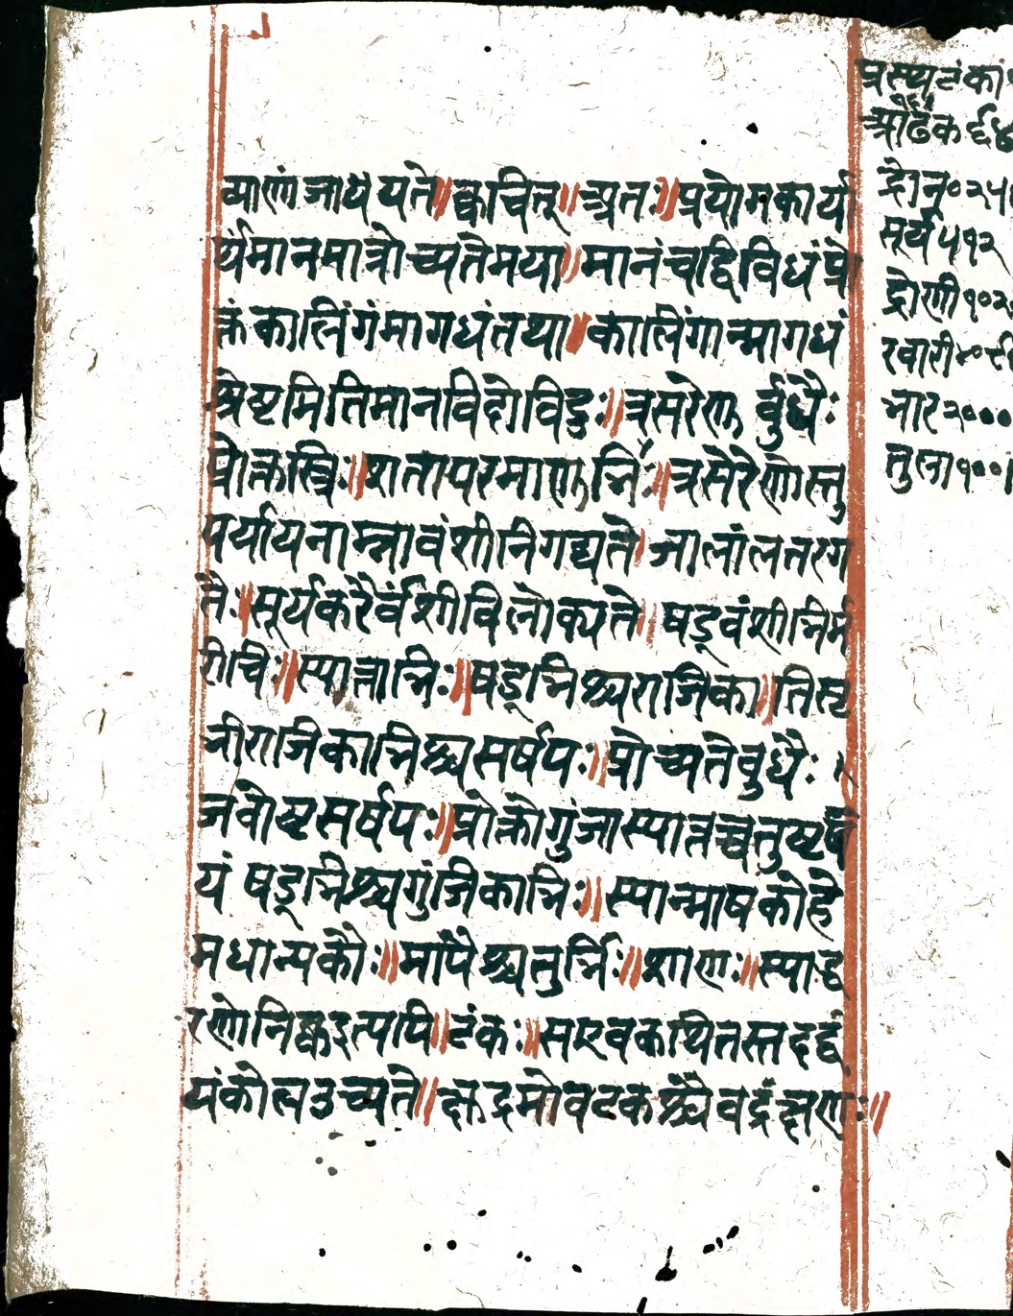 व्याणांजायायते॥क्वचित्॥अतः॥प्रयोगकार्या
र्थमानमात्रोच्यतेमया॥मानंचद्विविधंप्रो
क्तंकालिंगंमागधंतथा॥कालिंगान्मागधं
श्रेष्टमितिमानविदोविदुः॥त्रसरेणु र्बुधैः
प्रोक्तस्त्रिः॥शतापरमाणुभिः॥त्रसेरेणोस्तु
पर्यायनाम्नावंशीनिगद्यते॥जालांलतरग
तैः॥सूर्यकरैर्वंशीविलोक्यते॥षड्वंशीभिर्म
रीचिः॥स्यात्ताभिः॥षड्भिश्चराजिका॥तिसृ
भीराजिकाभिश्चसर्षपः॥प्रोच्यतेबुधैः
जवोष्टसर्षपः॥प्रोक्तोगुंजास्यात्तच्चतुष्ट
यं षड्भिश्चगुंजिकाभिः॥स्यान्माषकोहे
मधान्यकौः॥माषैश्चतुर्भिः॥शाणः॥स्याद्ध
रणोनिष्कइत्यपि॥टंकः॥सएवकथितस्तद्द्व
यंकोलउच्यते॥क्षुद्रमोवटकश्चैवद्रंक्षणः॥
प्रस्थटंकां
आढक ६४
द्रोन॰२५
सूर्य५१२
द्रोणी१०२
खारी४०९
भार२०००
तुला१००